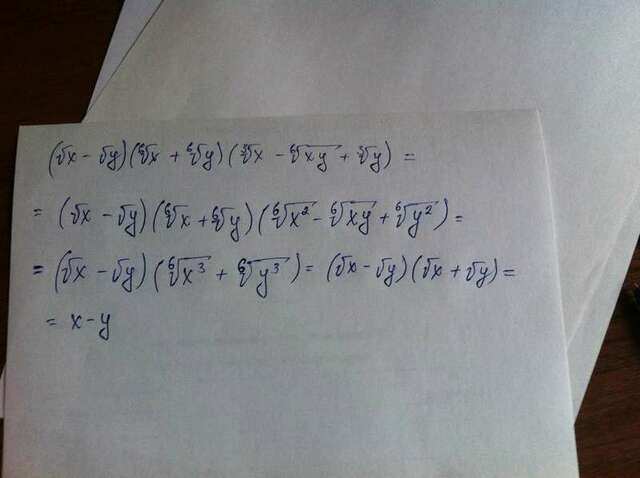 (√x − √y)(⁶√x + ⁶√y)(³√x − ⁶√xy + ³√y) =
= (√x − √y)(⁶√x + ⁶√y)(⁶√x² − ⁶√xy + ⁶√y²) =
= (√x − √y)(⁶√x³ + ⁶√y³) = (√x − √y)(√x + √y) =
= x − y